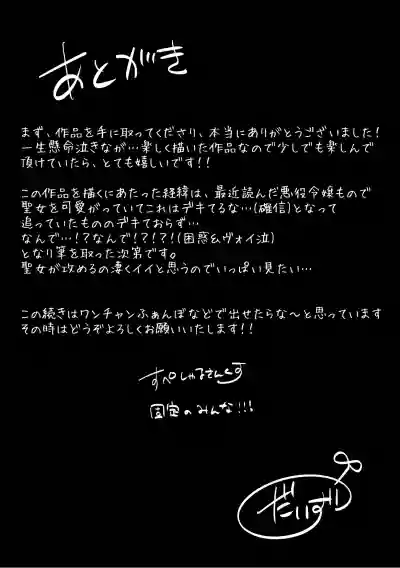 あとがき
まず、作品を手に取ってくださり、本当にありがとうございました!
一生懸命泣きなが…楽しく描いた作品なので少しでも楽しんで
頂けていたら、とても嬉しいです!!
この作品を描くにあたった経緯は、最近読んだ悪役令嬢もので
聖女を可愛がっていてこれはデキてるな…(確信)となって
追っていたもののデキておらず…
なんで…!?なんで!?!?!(困惑&ヴォイ泣)
となり筆を取った次第です。
聖女が攻めるの凄くイイと思うのでいっぱい見たい…
この続きはワンチャンふぁんぼなどで出せたらな〜と思っています
その時はどうぞよろしくお願いいたします!!
すぺしゃるさんくす
固定のみんな!!!
だいず